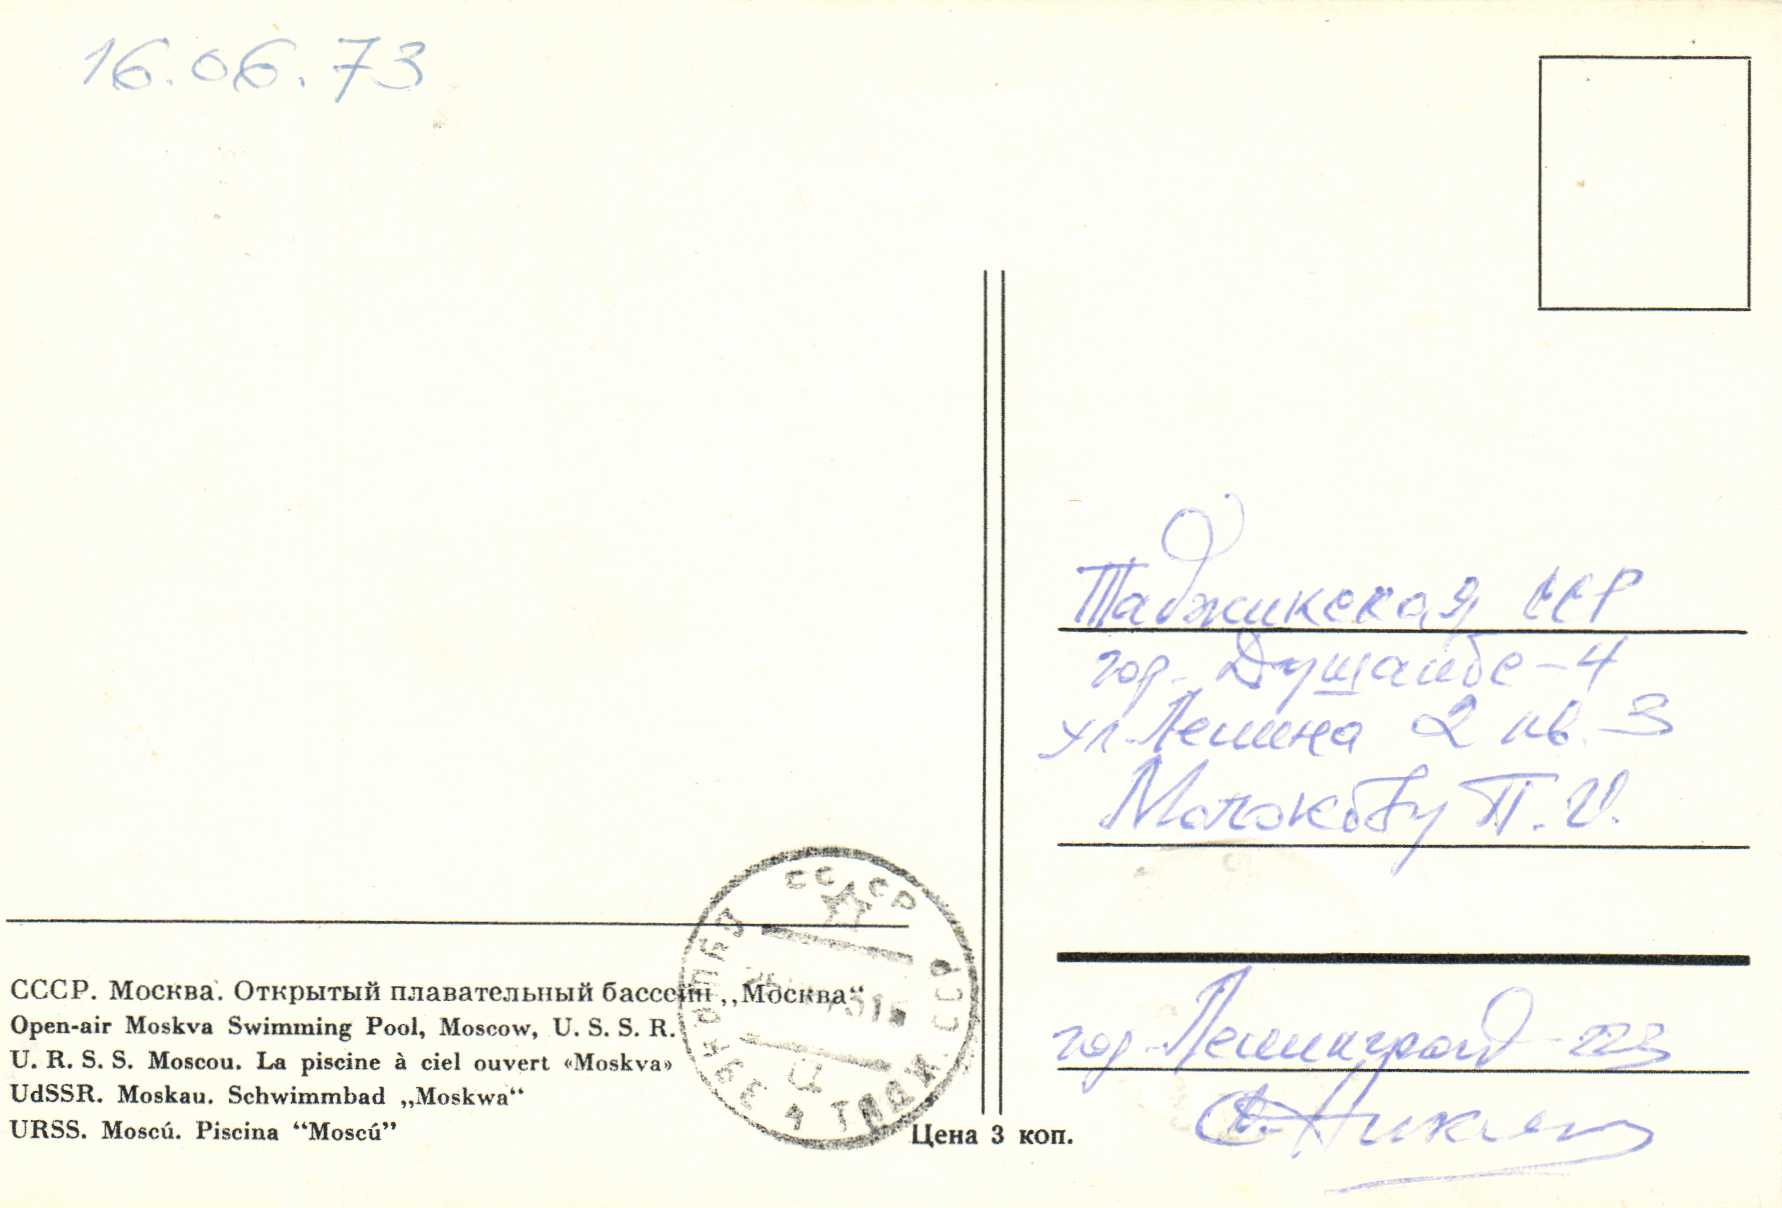 16.06.73
Таджикская ССР
гор. Душанбе-4
ул. Ленина 2 кв. 3
Молокову П. И.
СССР
ТАДЖ. ССР
Ц
СССР. Москва. Открытый плавательный бассейн „Москва“
Open-air Moskva Swimming Pool, Moscow, U. S. S. R.
U. R. S. S. Moscou. La piscine à ciel ouvert «Moskva»
UdSSR. Moskau. Schwimmbad „Moskwa“
URSS. Moscú. Piscina “Moscú”
Цена 3 коп.
гор. Ленинград